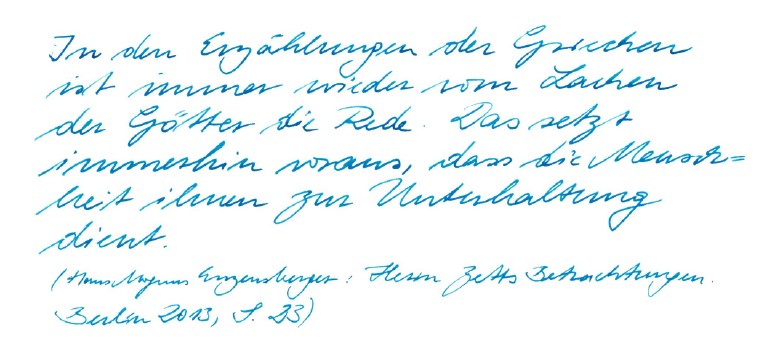 In den Erzählungen der Griechen
ist immer wieder vom Lachen
der Götter die Rede. Das setzt
immerhin voraus, dass die Mensch=
heit ihnen zur Unterhaltung
dient.
(Hans Magnus Enzensberger: Herrn Zetts Betrachtungen.
Berlin 2013, S. 23)